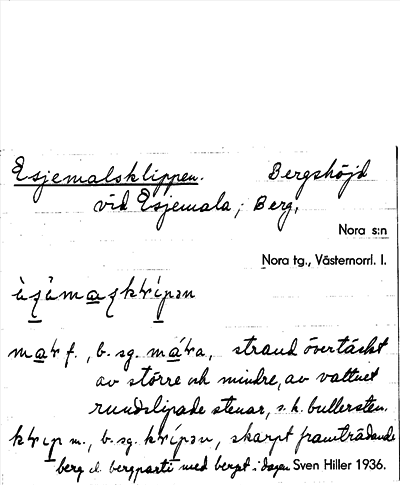 Esjemalsklippen. Bergshöjd
vid Esjemala, Berg,
Nora s:n
Nora tg., Västernorrl. l.
f., b. sg. strand övertäckt
av större och mindre, av vattnet
rundslipade stenar, s. k. bullersten.
m., b. sg. skarpt framträdande
berg el. bergparti med bergt i dagen Sven Hiller 1936.